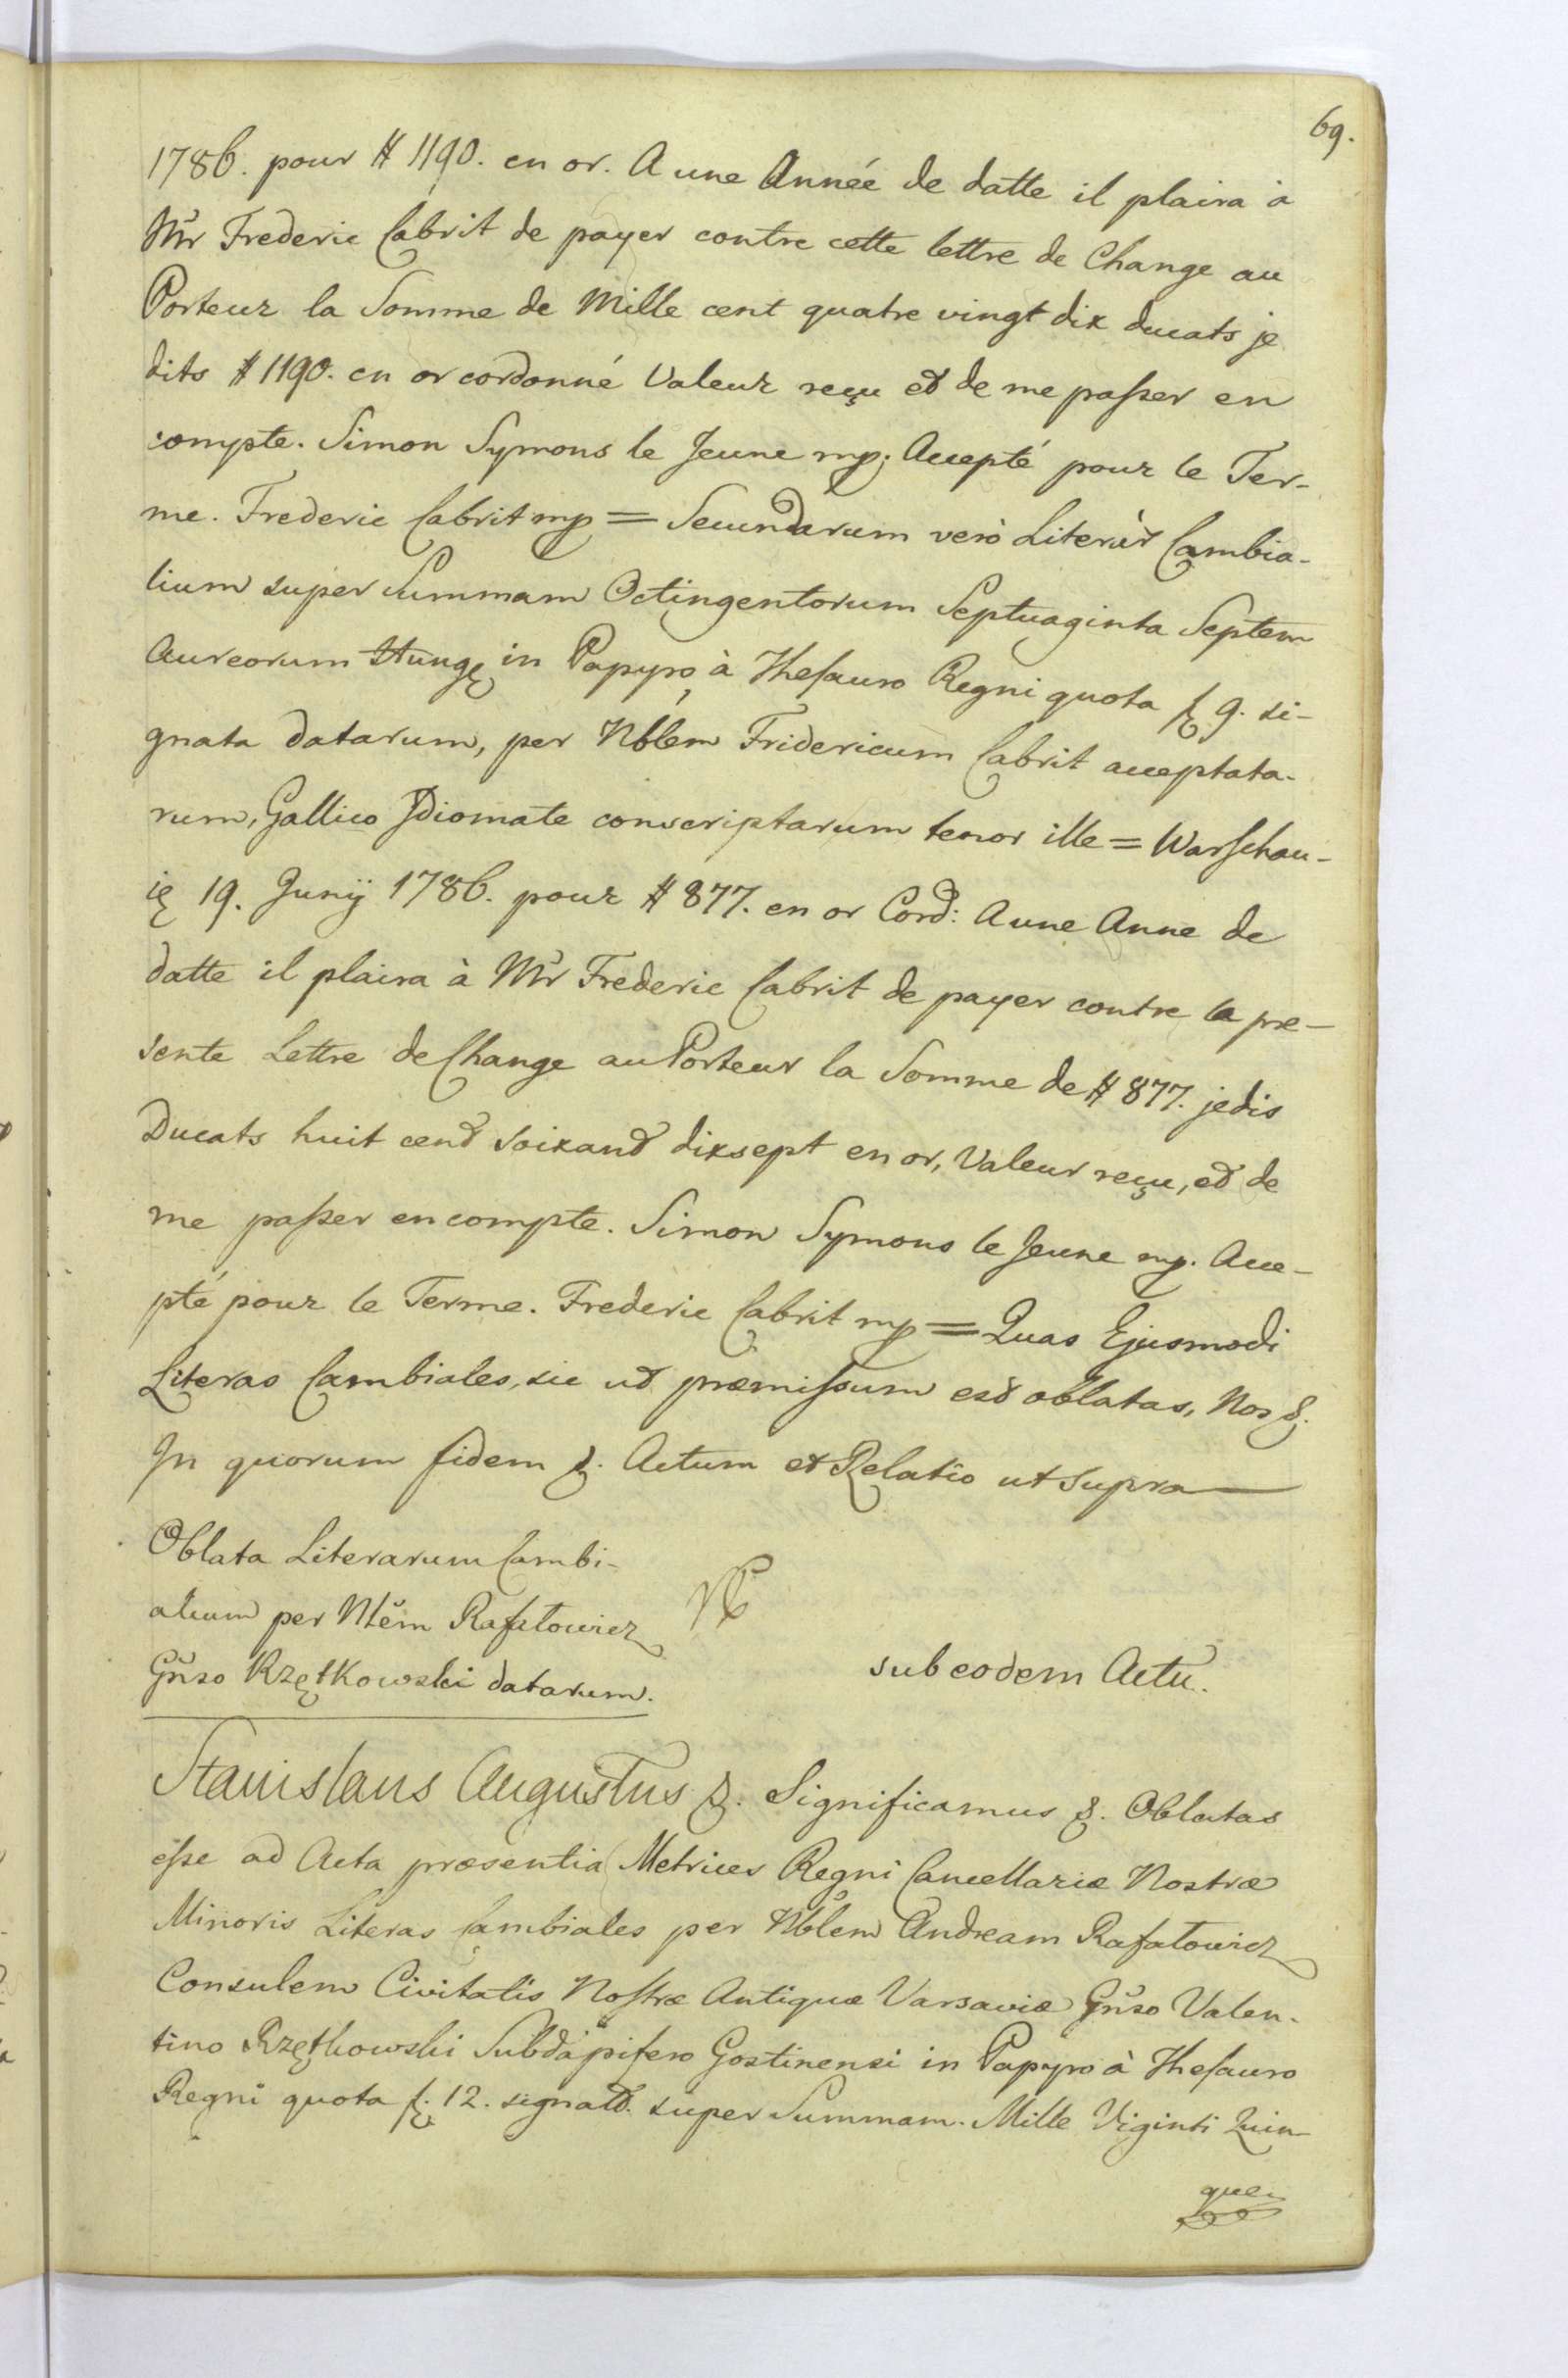 69.
1786. pour # 1190. en or. A une Année de datte il plaira à
Mr Frederic Cabrit de payer contre cette lettre de Change au
Porteur la Somme de Mille cent quatre vingt dix ducats je
dits # 1190. en or cordonné Valeur reçu et de me passer en
compte. Simon Symons le Jeune mp; Accepté pour le Ter-
me. Frederic Cabrit mp = Secundarum verò Literàr Cambia-
lium super Summam Octingentorum Septuaginta Septem
Aureorum Hung in Papyro à Thesauro Regni quota f 9. si-
gnata datarum, per Nblem Fridericum Cabrit acceptata-
rum, Gallico Idiomate conscriptarum tenor ille = Warschau-
ię 19. Junij 1786. pour # 877. en or Cord: A une Anne de
datte il plaira à Mr Frederic Cabrit de payer contre la pre-
sente Lettre de Change au Porteur la Somme de # 877. je dis
Ducats huit cent soixant dix sept en or, Valeur reçu, et de
me passer en compte. Simon Symons le Jeune mp. Acce-
pté pour le Terme. Frederic Cabrit mp = Quas Ejusmodi
Literas Cambiales, sic ut præmissum est oblatas, Nos &.
In quorum fidem &. Actum et Relatio ut supra
Oblata Literarum Cambi-
alium per Nlem Rafałowicz
Gnso Rzętkowski datarum.
sub eodem Actu.
Stanislaus Augustus &. Significamus &. Oblatas
esse ad Acta præsentia Metrices Regni Cancellariæ Nostræ
Minoris Literas Cambiales per Nblem Andream Rafałowicz
Consulem Civitatis Nostræ Antiquæ Varsaviæ Gnso Valen-
tino Rzętkowski Subdapifero Gostinensi in Papyro à Thesauro
Regni quota f. 12. signatt. super Summam Mille Viginti Quin-
que